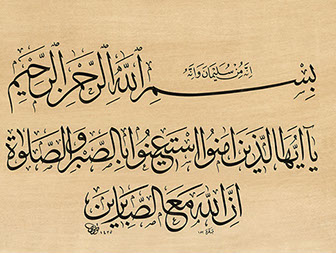 انه من سليمان وانه
بسم الله الرحمن الرحيم
يا ايها الذين امنوا استعينوا بالصبر والصلاة
ان الله مع الصابرين